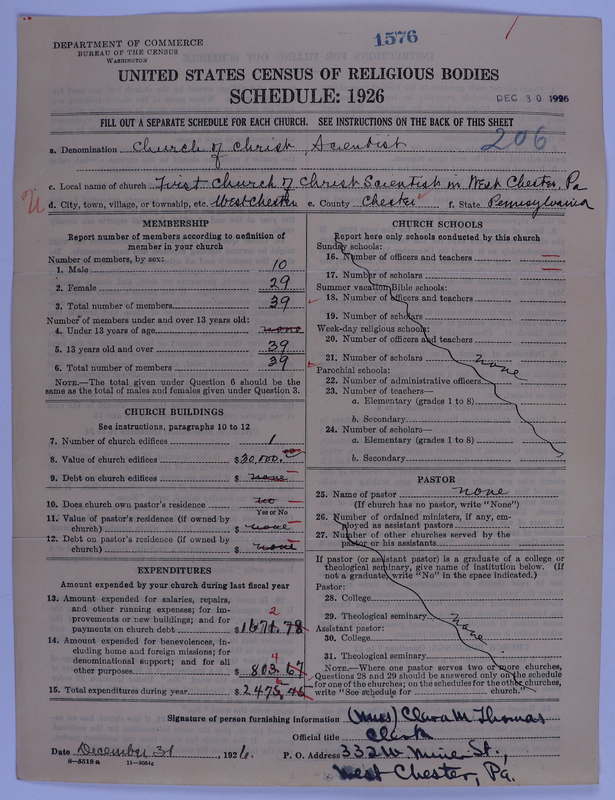 1576
DEPARTMENT OF COMMERCE
BUREAU OF THE CENSUS
WASHINGTON
UNITED STATES CENSUS OF RELIGIOUS BODIES
SCHEDULE: 1926
DEC 30 1926
FILL OUT A SEPARATE SCHEDULE FOR EACH CHURCH. SEE INSTRUCTIONS ON THE BACK OF THIS SHEET
206
a. Denomination Church of Christ, Scientist
c. Local name of church First Church of Christ Scientist in West Chester, Pa
d. City, town, village, or township, etc. West Chester e. County Chester f. State Pennsylvania
MEMBERSHIP
Report number of members according to definition of
member in your church
Number of members, by sex:
1. Male 10
2. Female 29
3. Total number of members 39
Number of members under and over 13 years old:
4. Under 13 years of age none
5. 13 years old and over 39
6. Total number of members 39
NOTE.—The total given under Question 6 should be the
same as the total of males and females given under Question 3.
CHURCH BUILDINGS
See instructions, paragraphs 10 to 12
7. Number of church edifices 1
8. Value of church edifices $30,000.00
9. Debt on church edifices $ none
10. Does church own pastor's residence no
Yes or No
11. Value of pastor's residence (if owned by
church) $ none
12. Debt on pastor's residence (if owned by
church) $ none
EXPENDITURES
Amount expended by your church during last fiscal year
13. Amount expended for salaries, repairs,
and other running expenses; for im-
provements or new buildings; and for
payments on church debt $1671.78
2
14. Amount expended for benevolences, in-
cluding home and foreign missions; for
denominational support; and for all
other purposes $ 803.67
4
15. Total expenditures during year $2475.45
CHURCH SCHOOLS
Report here only schools conducted by this church
Sunday schools:
16. Number of officers and teachers
17. Number of scholars
Summer vacation Bible schools:
18. Number of officers and teachers
19. Number of scholars
Week-day religious schools:
20. Number of officers and teachers
21. Number of scholars none
Parochial schools:
22. Number of administrative officers
23. Number of teachers—
a. Elementary (grades 1 to 8)
b. Secondary
24. Number of scholars—
a. Elementary (grades 1 to 8)
b. Secondary
PASTOR
25. Name of pastor none
(If church has no pastor, write "None")
26. Number of ordained ministers, if any, em-
ployed as assistant pastors
27. Number of other churches served by the
pastor or his assistants
If pastor (or assistant pastor) is a graduate of a college or
theological seminary, give name of institution below. (If
not a graduate, write "No" in the space indicated.)
Pastor:
28. College
29. Theological seminary none
Assistant pastor:
30. College
31. Theological seminary
NOTE.—Where one pastor serves two or more churches,
Questions 28 and 29 should be answered only on the schedule
for one of the churches; on the schedules for the other churches,
write "See schedule for church."
Signature of person furnishing information (Miss) Clara M. Thomas
Official title Clerk
Date December 31, 1926. P. O. Address 332 W. Miner St.,
8—5518 a 11—9084a
West Chester, Pa.